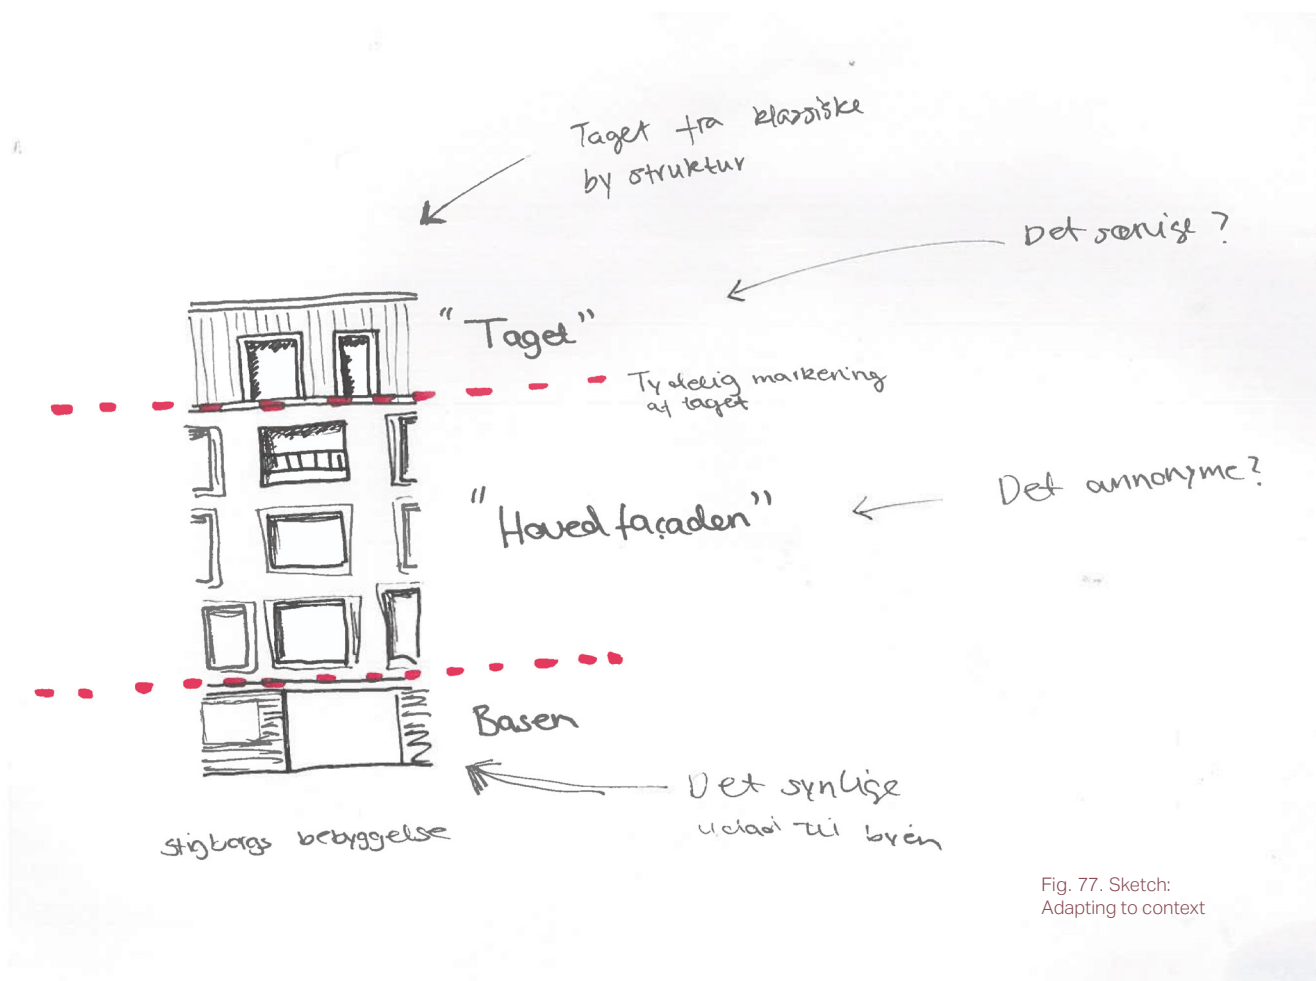 Taget fra klassiske
by struktur
Det særlige?
"Taget"
Tydelig markering
af taget
Det annonyme?
"Hovedfaçaden"
Basen
Det synlige
udad til byen
stigborgs bebyggelse
Fig. 77. Sketch:
Adapting to context